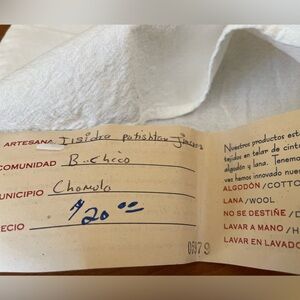 ARTESANA Isidra patishtan
COMUNIDAD B..chico
MUNICIPIO Chamula
PRECIO $20.00
Nuestros productos est
tejidos en telar de cint
algodón y lana. Tenemo
ves hemos innovado nue
ALGODÓN /COTTO
LANA /WOOL
NO SE DESTIÑE / D
LAVAR A MANO / H
LAVAR EN LAVADO
0579